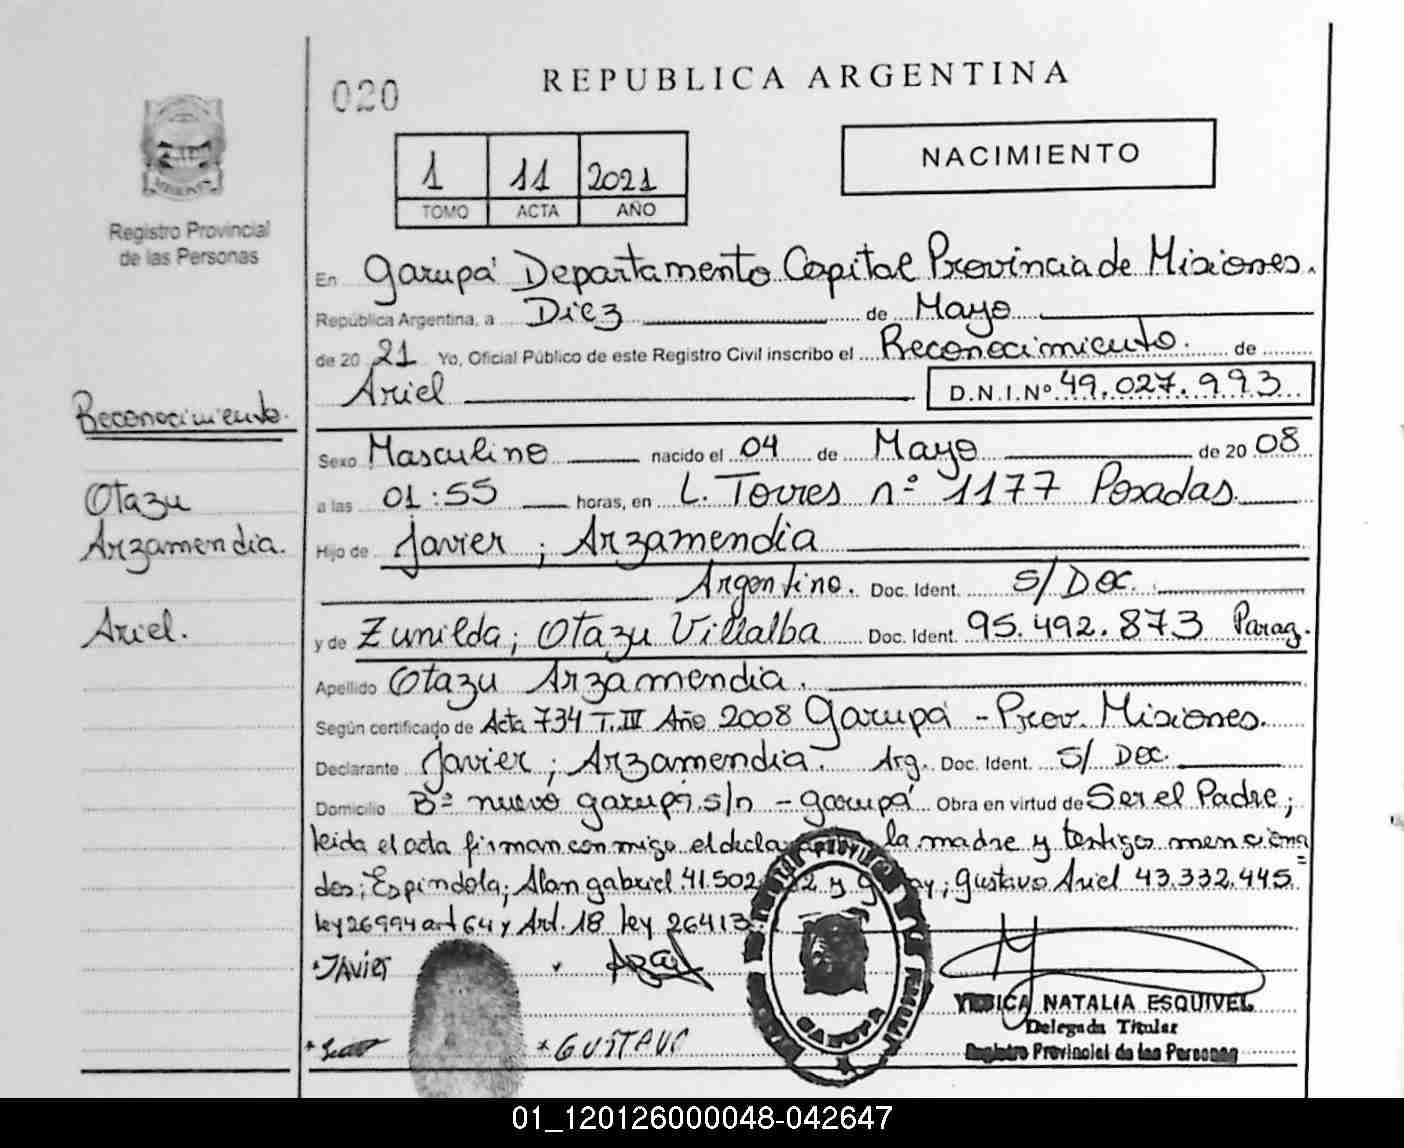 020
REPUBLICA ARGENTINA
1 11 2021
TOMO ACTA AÑO
NACIMIENTO
Registro Provincial
de las Personas
En Garupá Departamento Capital Provincia de Misiones.
República Argentina, a Diez de Mayo
de 2021 Yo, Oficial Público de este Registro Civil inscribo el Reconocimiento. de
Ariel D.N.I.Nº 49.027.993
Reconocimiento.
Otazu
Arzamendia.
Ariel.
Sexo Masculino nacido el 04 de Mayo de 2008
a las 01:55 horas, en L. Torres nº 1177 Posadas.
Hijo de Javier; Arzamendia
Argentino. Doc. Ident. S/ Doc.
y de Zunilda; Otazu Villalba Doc. Ident. 95.492.873 Parag.
Apellido Otazu Arzamendia.
Según certificado de Acta 734 T.III Año 2008 Garupá - Prov. Misiones.
Declarante Javier; Arzamendia. Arg. Doc. Ident. S/ Doc.
Domicilio Bº nuevo garupá s/n - garupá Obra en virtud de Ser el Padre;
leida el acta firman conmigo el la madre y testigos menciona
dos; Espindola; Alan gabriel 41.502 y Gustavo Ariel 43.332.445.
ley 26994 art 64 y Art. 18 ley 26413.
JAVIER
GUSTAVO
GARUPA
YESICA NATALIA ESQUIVEL
Delegada Titular
Registro Provincial de las Personas
01_120126000048-042647